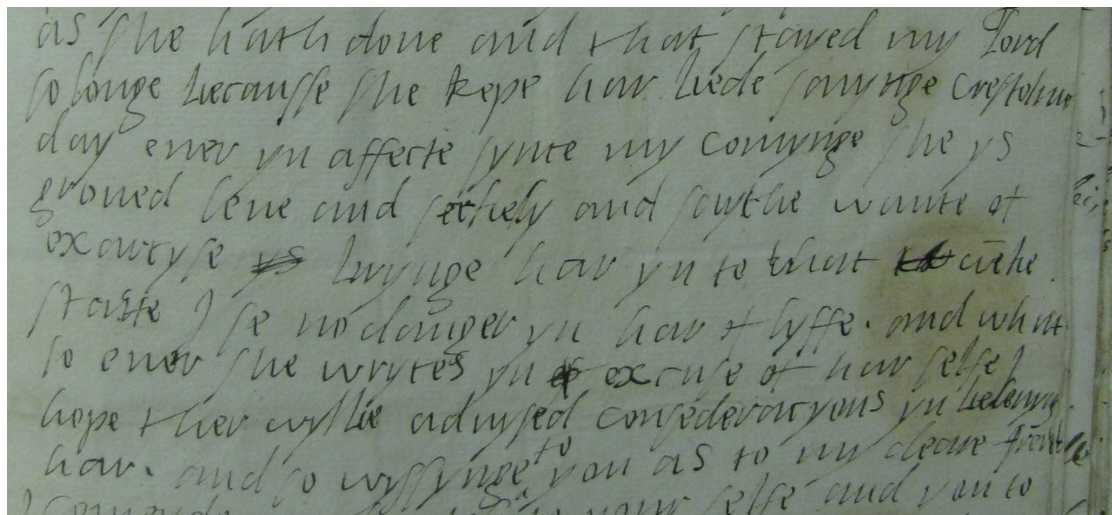 as she hath done and that stayed my Lord
so longe becausse she kepe har bede sayinge
day ever yn affecte synce my comynge she ys
growed lene and seckely and saythe wante of
exarcyse ys brynge har yn to that
state I se no danger yn har of lyffe. and what
so ever she wrytes yn excuse of har selfe I
hope ther wyll be advysed consederacyons yn
har. and so wyssynge to you as to my deare
selfe and you to